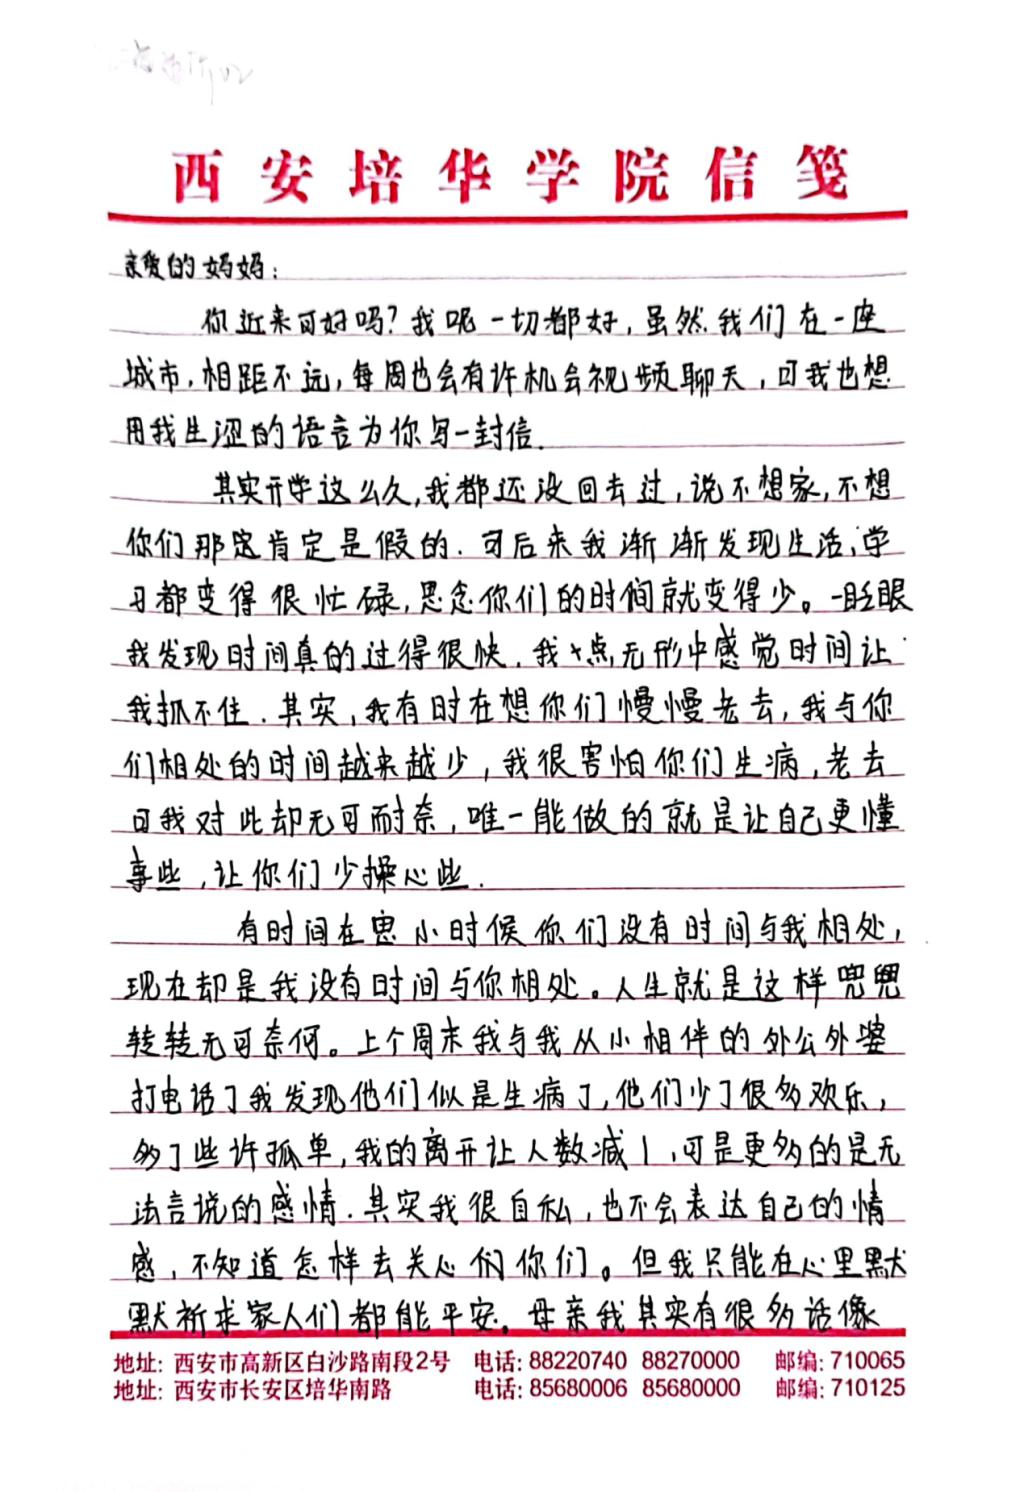 西安培华学院信笺
亲爱的妈妈:
你近来可好吗?我呢一切都好,虽然我们在一座
城市,相距不远,每周也会有许机会视频聊天,可我也想
用我生涩的语言为你写一封信.
其实开学这么久,我都还没回去过,说不想家,不想
你们那定肯定是假的.可后来我渐渐发现生活,学
习都变得很忙碌,思念你们的时间就变得少。一眨眼
我发现时间真的过得很快.我点无形中感觉时间让
我抓不住.其实,我有时在想你们慢慢老去,我与你
们相处的时间越来越少,我很害怕你们生病,老去
可我对此却无可耐奈,唯一能做的就是让自己更懂
事些,让你们少操心些.
有时间在思小时候你们没有时间与我相处,
现在却是我没有时间与你相处。人生就是这样兜兜
转转无可奈何。上个周末我与我从小相伴的外公外婆
打电话了我发现他们似是生病了,他们少了很多欢乐,
多了些许孤单,我的离开让人数减1,可是更多的是无
法言说的感情.其实我很自私,也不会表达自己的情
感,不知道怎样去关心你们。但我只能在心里默
默祈求家人们都能平安。母亲我其实有很多话像
地址: 西安市高新区白沙路南段2号 电话: 88220740 88270000 邮编: 710065
地址: 西安市长安区培华南路 电话: 85680006 85680000 邮编: 710125